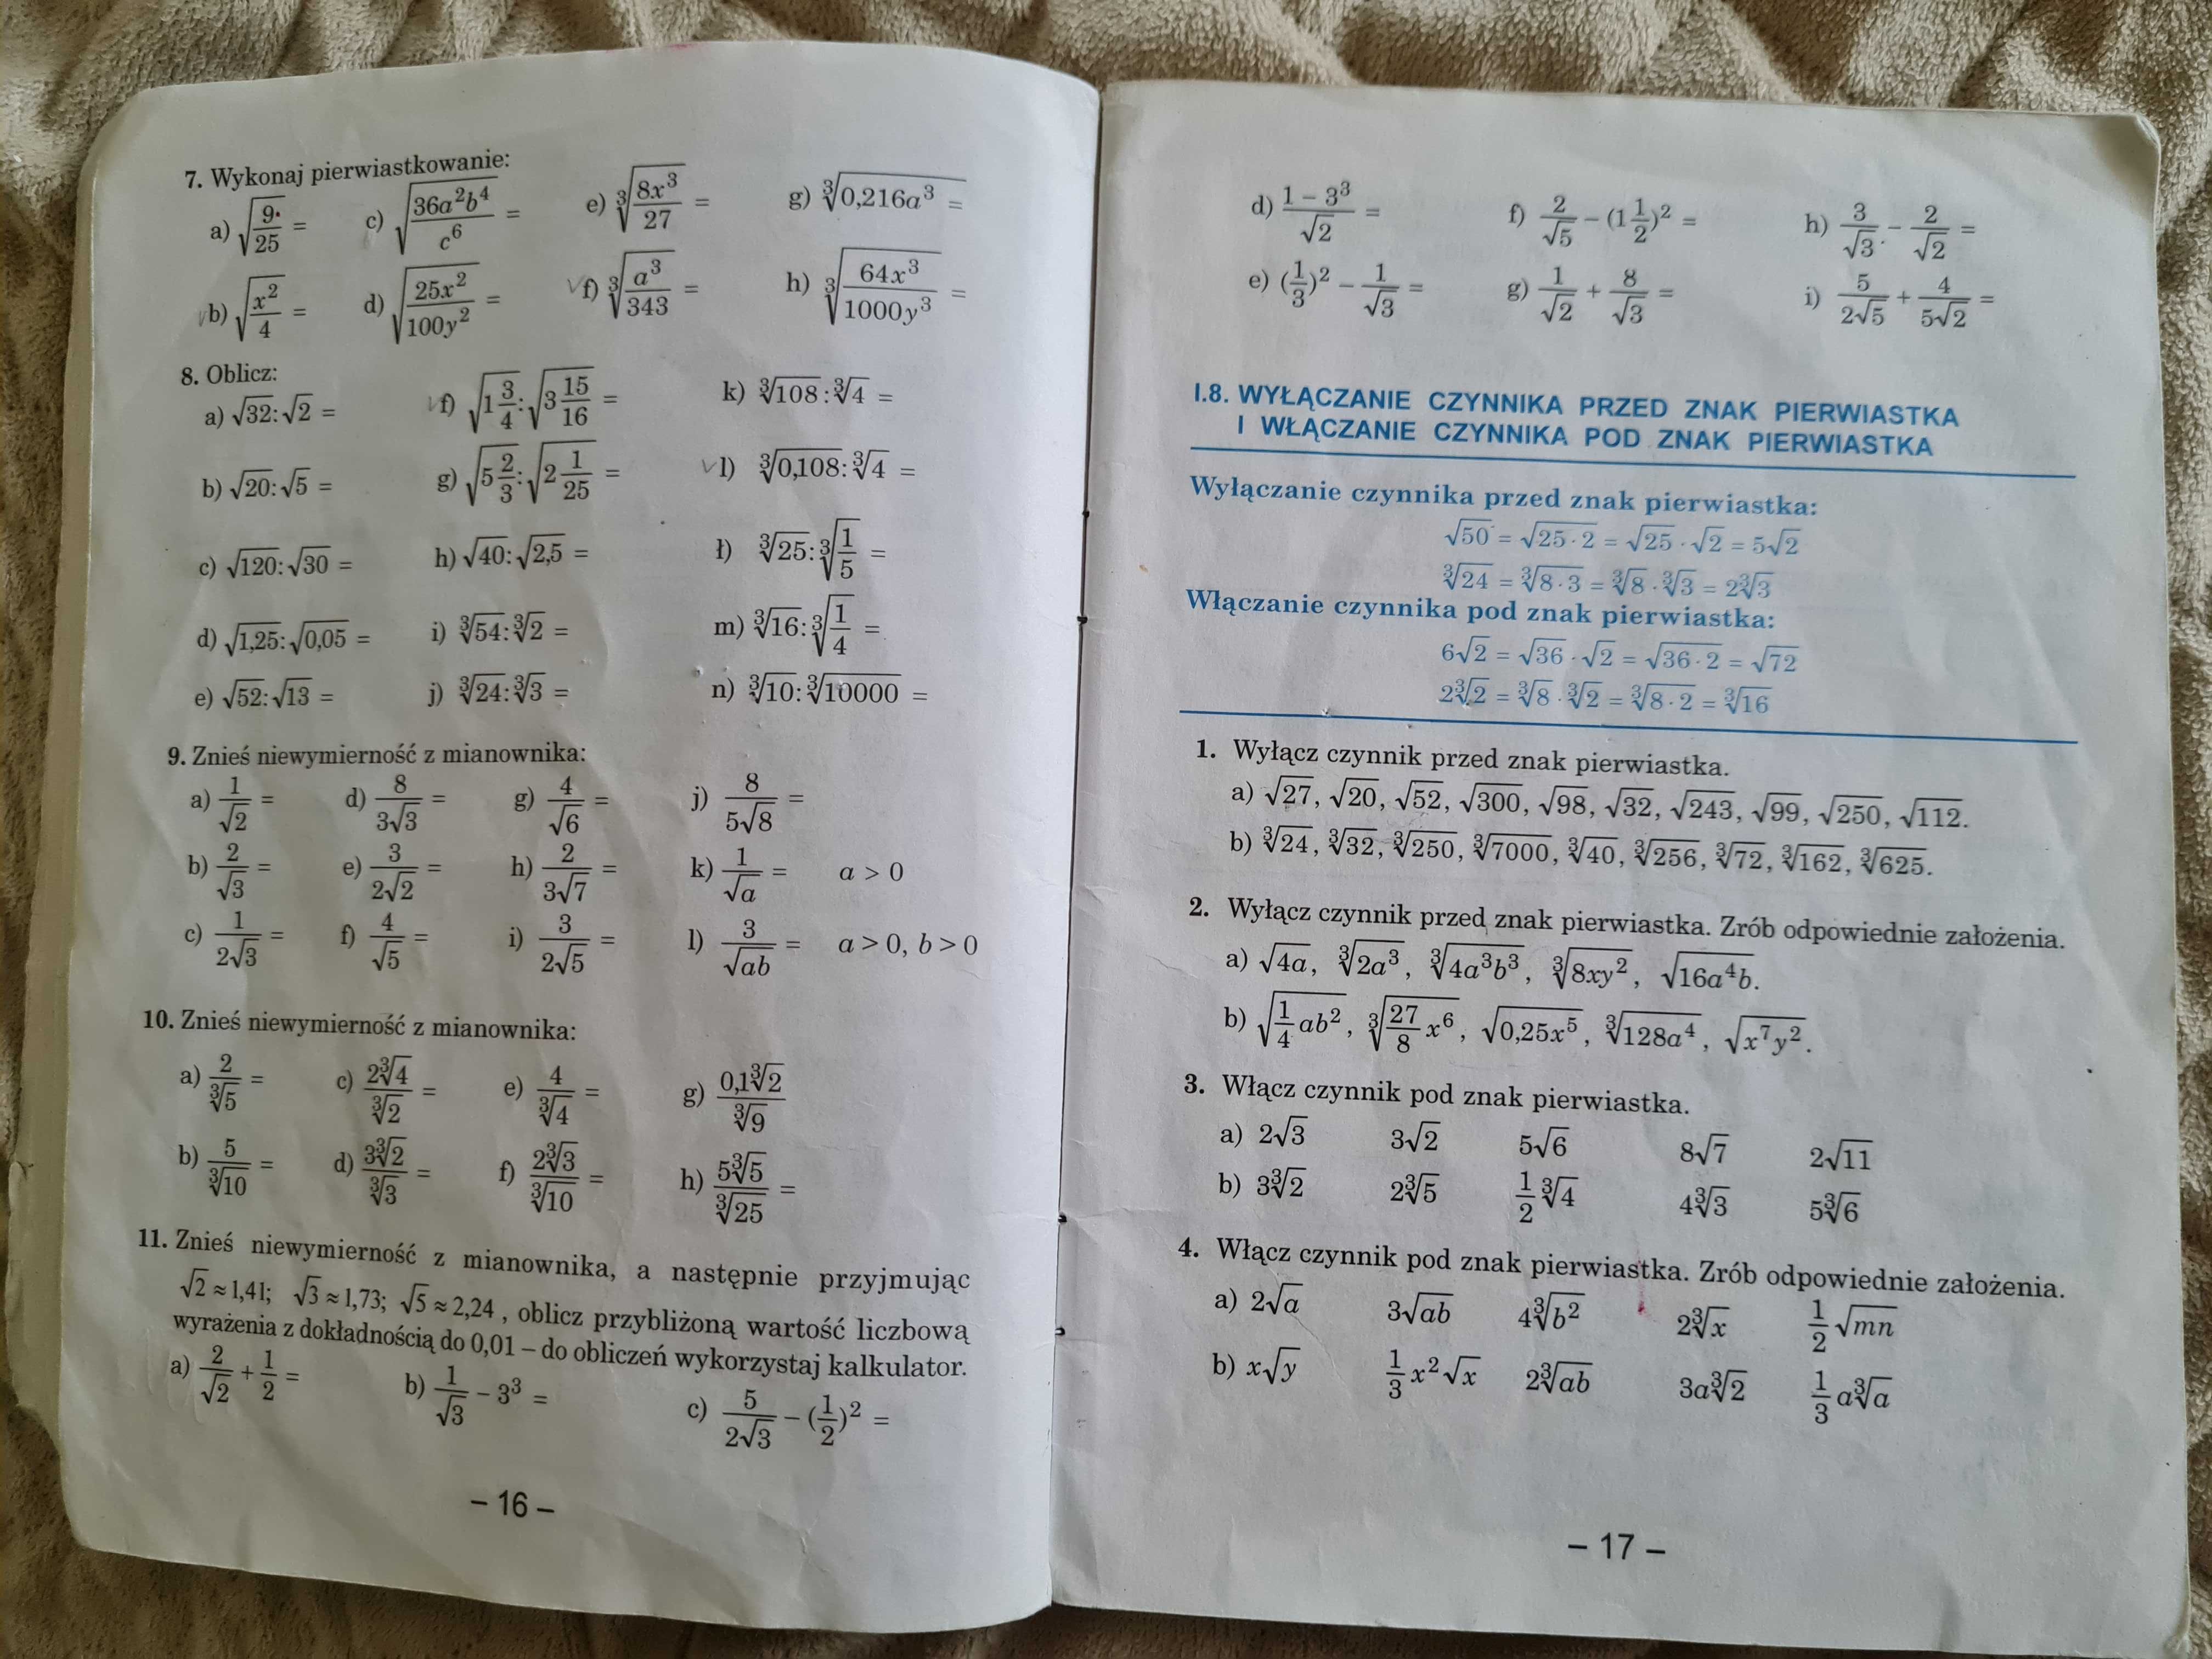 7. Wykonaj pierwiastkowanie:
a) √(9/25) = c) √(36a²b⁴/c⁶) = e) ∛(8x³/27) = g) ∛(0,216a³) =
b) √(x²/4) = d) √(25x²/100y²) = f) ∛(a³/343) = h) ∛(64x³/1000y³) =
8. Oblicz:
a) √32:√2 = f) √(1 3/4):√(3 15/16) = k) ∛108:∛4 =
b) √20:√5 = g) √(5 2/3):√(2 1/25) = l) ∛0,108:∛4 =
c) √120:√30 = h) √40:√2,5 = ł) ∛25:∛(1/5) =
d) √1,25:√0,05 = i) ∛54:∛2 = m) ∛16:∛(1/4) =
e) √52:√13 = j) ∛24:∛3 = n) ∛10:∛10000 =
9. Znieś niewymierność z mianownika:
a) 1/√2 = d) 8/(3√3) = g) 4/√6 = j) 8/(5√8) =
b) 2/√3 = e) 3/(2√2) = h) 2/(3√7) = k) 1/√a = a > 0
c) 1/(2√3) = f) 4/√5 = i) 3/(2√5) = l) 3/√(ab) = a > 0, b > 0
10. Znieś niewymierność z mianownika:
a) 2/∛5 = c) 2∛4/∛2 = e) 4/∛4 = g) 0,1∛2/∛9
b) 5/∛10 = d) 3∛2/∛3 = f) 2∛3/∛10 = h) 5∛5/∛25 =
11. Znieś niewymierność z mianownika, a następnie przyjmując
√2 ≈ 1,41; √3 ≈ 1,73; √5 ≈ 2,24 , oblicz przybliżoną wartość liczbową
wyrażenia z dokładnością do 0,01 – do obliczeń wykorzystaj kalkulator.
a) 2/√2 + 1/2 = b) 1/√3 - 3³ = c) 5/(2√3) - (1/2)² =
– 16 –
d) (1 - 3³)/√2 = f) 2/√5 - (1 1/2)² = h) 3/√3 - 2/√2 =
e) (1/3)² - 1/√3 = g) 1/√2 + 8/√3 = i) 5/(2√5) + 4/(5√2) =
I.8. WYŁĄCZANIE CZYNNIKA PRZED ZNAK PIERWIASTKA
I WŁĄCZANIE CZYNNIKA POD ZNAK PIERWIASTKA
Wyłączanie czynnika przed znak pierwiastka:
√50 = √(25·2) = √25·√2 = 5√2
∛24 = ∛(8·3) = ∛8·∛3 = 2∛3
Włączanie czynnika pod znak pierwiastka:
6√2 = √36·√2 = √(36·2) = √72
2∛2 = ∛8·∛2 = ∛(8·2) = ∛16
1. Wyłącz czynnik przed znak pierwiastka.
a) √27, √20, √52, √300, √98, √32, √243, √99, √250, √112.
b) ∛24, ∛32, ∛250, ∛7000, ∛40, ∛256, ∛72, ∛162, ∛625.
2. Wyłącz czynnik przed znak pierwiastka. Zrób odpowiednie założenia.
a) √(4a), ∛(2a³), ∛(4a³b³), ∛(8xy²), √(16a⁴b).
b) √(1/4 ab²), ∛(27/8 x⁶), √(0,25x⁵), ∛(128a⁴), √(x⁷y²).
3. Włącz czynnik pod znak pierwiastka.
a) 2√3 3√2 5√6 8√7 2√11
b) 3∛2 2∛5 1/2 ∛4 4∛3 5∛6
4. Włącz czynnik pod znak pierwiastka. Zrób odpowiednie założenia.
a) 2√a 3√(ab) 4∛(b²) 2∛x 1/2 √(mn)
b) x√y 1/3 x²√x 2∛(ab) 3a∛2 1/3 a∛a
– 17 –